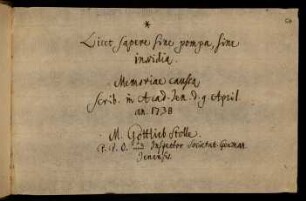 *
Licet sapere sine pompa, sine
invidia.
Memoriae causa
scrib. in Acad. Jen. d. 9 April
an. 1738
M. Gottlieb Stolle.
P. P. O. Inspector Societat. German.
Jenensis.